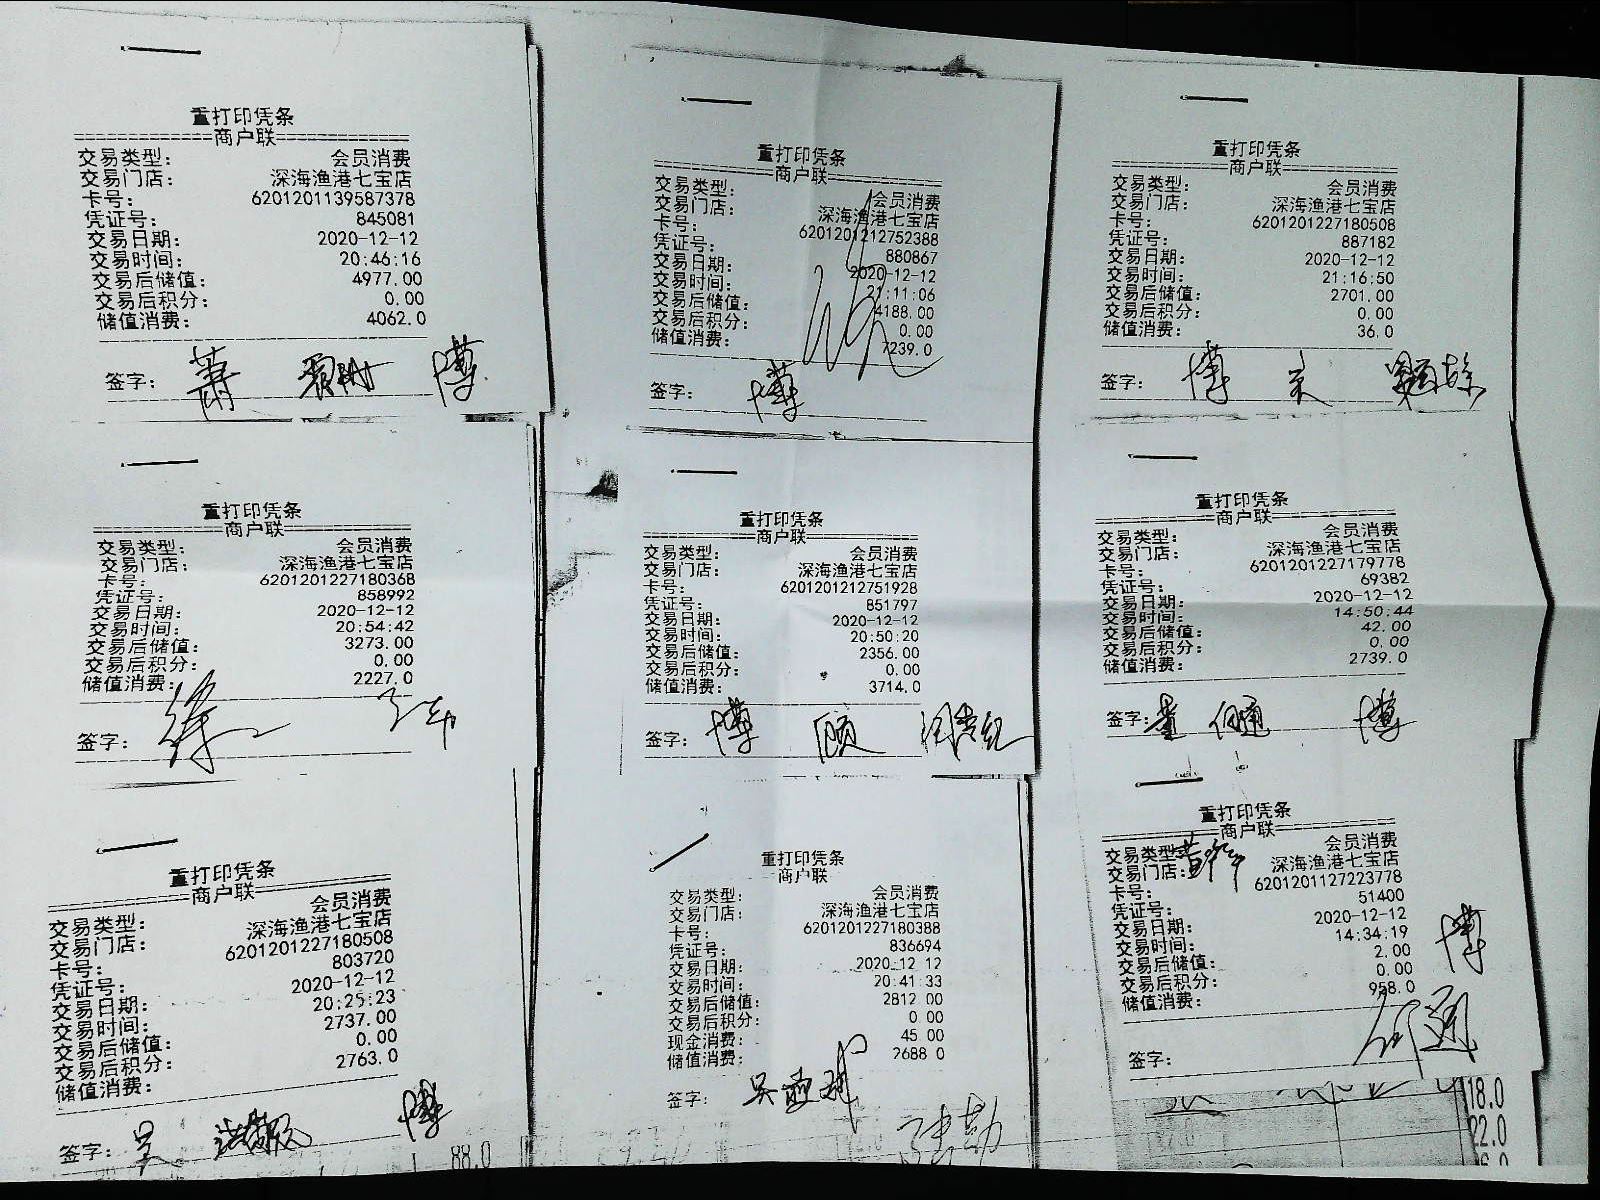 重打印凭条
商户联
交易类型： 会员消费
交易门店： 深海渔港七宝店
卡号： 6201201139587378
凭证号： 845081
交易日期： 2020-12-12
交易时间： 20:46:16
交易后储值： 4977.00
交易后积分： 0.00
储值消费： 4062.0
签字： 萧 博
重打印凭条
商户联
交易类型： 会员消费
交易门店： 深海渔港七宝店
卡号： 6201201212752388
凭证号： 880867
交易日期： 2020-12-12
交易时间： 21:11:06
交易后储值： 4188.00
交易后积分： 0.00
储值消费： 7239.0
签字： 博
重打印凭条
商户联
交易类型： 会员消费
交易门店： 深海渔港七宝店
卡号： 6201201227180508
凭证号： 887182
交易日期： 2020-12-12
交易时间： 21:16:50
交易后储值： 2701.00
交易后积分： 0.00
储值消费： 36.0
签字： 博
重打印凭条
商户联
交易类型： 会员消费
交易门店： 深海渔港七宝店
卡号： 6201201227180368
凭证号： 858992
交易日期： 2020-12-12
交易时间： 20:54:42
交易后储值： 3273.00
交易后积分： 0.00
储值消费： 2227.0
签字：
重打印凭条
商户联
交易类型： 会员消费
交易门店： 深海渔港七宝店
卡号： 6201201212751928
凭证号： 851797
交易日期： 2020-12-12
交易时间： 20:50:20
交易后储值： 2356.00
交易后积分： 0.00
储值消费： 3714.0
签字： 博 顾
重打印凭条
商户联
交易类型： 会员消费
交易门店： 深海渔港七宝店
卡号： 6201201227179778
凭证号： 69382
交易日期： 2020-12-12
交易时间： 14:50:44
交易后储值： 42.00
交易后积分： 0.00
储值消费： 2739.0
签字： 董 博
重打印凭条
商户联
交易类型： 会员消费
交易门店： 深海渔港七宝店
卡号： 6201201227180508
凭证号： 803720
交易日期： 2020-12-12
交易时间： 20:25:23
交易后储值： 2737.00
交易后积分： 0.00
储值消费： 2763.0
签字： 吴 博
88.0
重打印凭条
商户联
交易类型： 会员消费
交易门店： 深海渔港七宝店
卡号： 6201201227180388
凭证号： 836694
交易日期： 2020 12 12
交易时间： 20:41:33
交易后储值： 2812 00
交易后积分： 0 00
现金消费： 45 00
储值消费： 2688 0
签字： 吴
重打印凭条
商户联
交易类型 会员消费
交易门店： 深海渔港七宝店
卡号： 6201201127223778
凭证号： 51400
交易日期： 2020-12-12
交易时间： 14:34:19
交易后储值： 2.00
交易后积分： 0.00
储值消费： 958.0
博
签字：
18.0
22.0